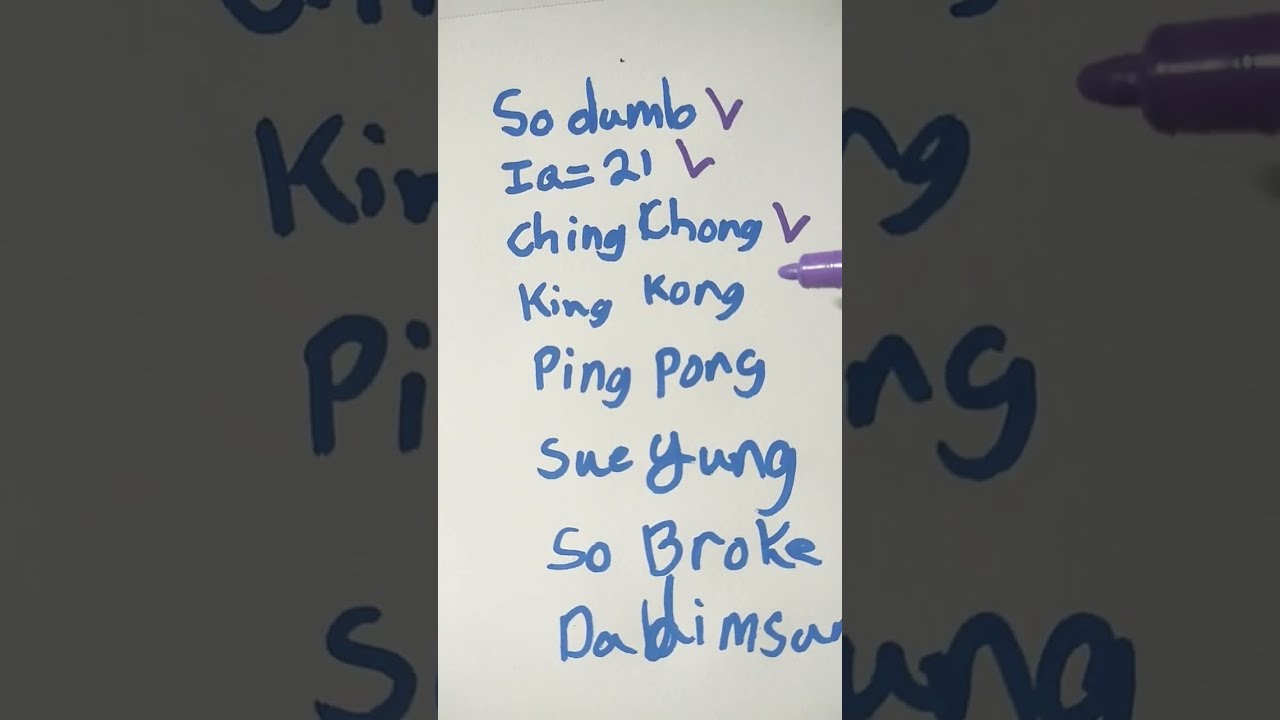 So dumb ✓
Ia=21 ✓
Ching Chong ✓
King Kong
Ping Pong
Sue Yung
So Broke